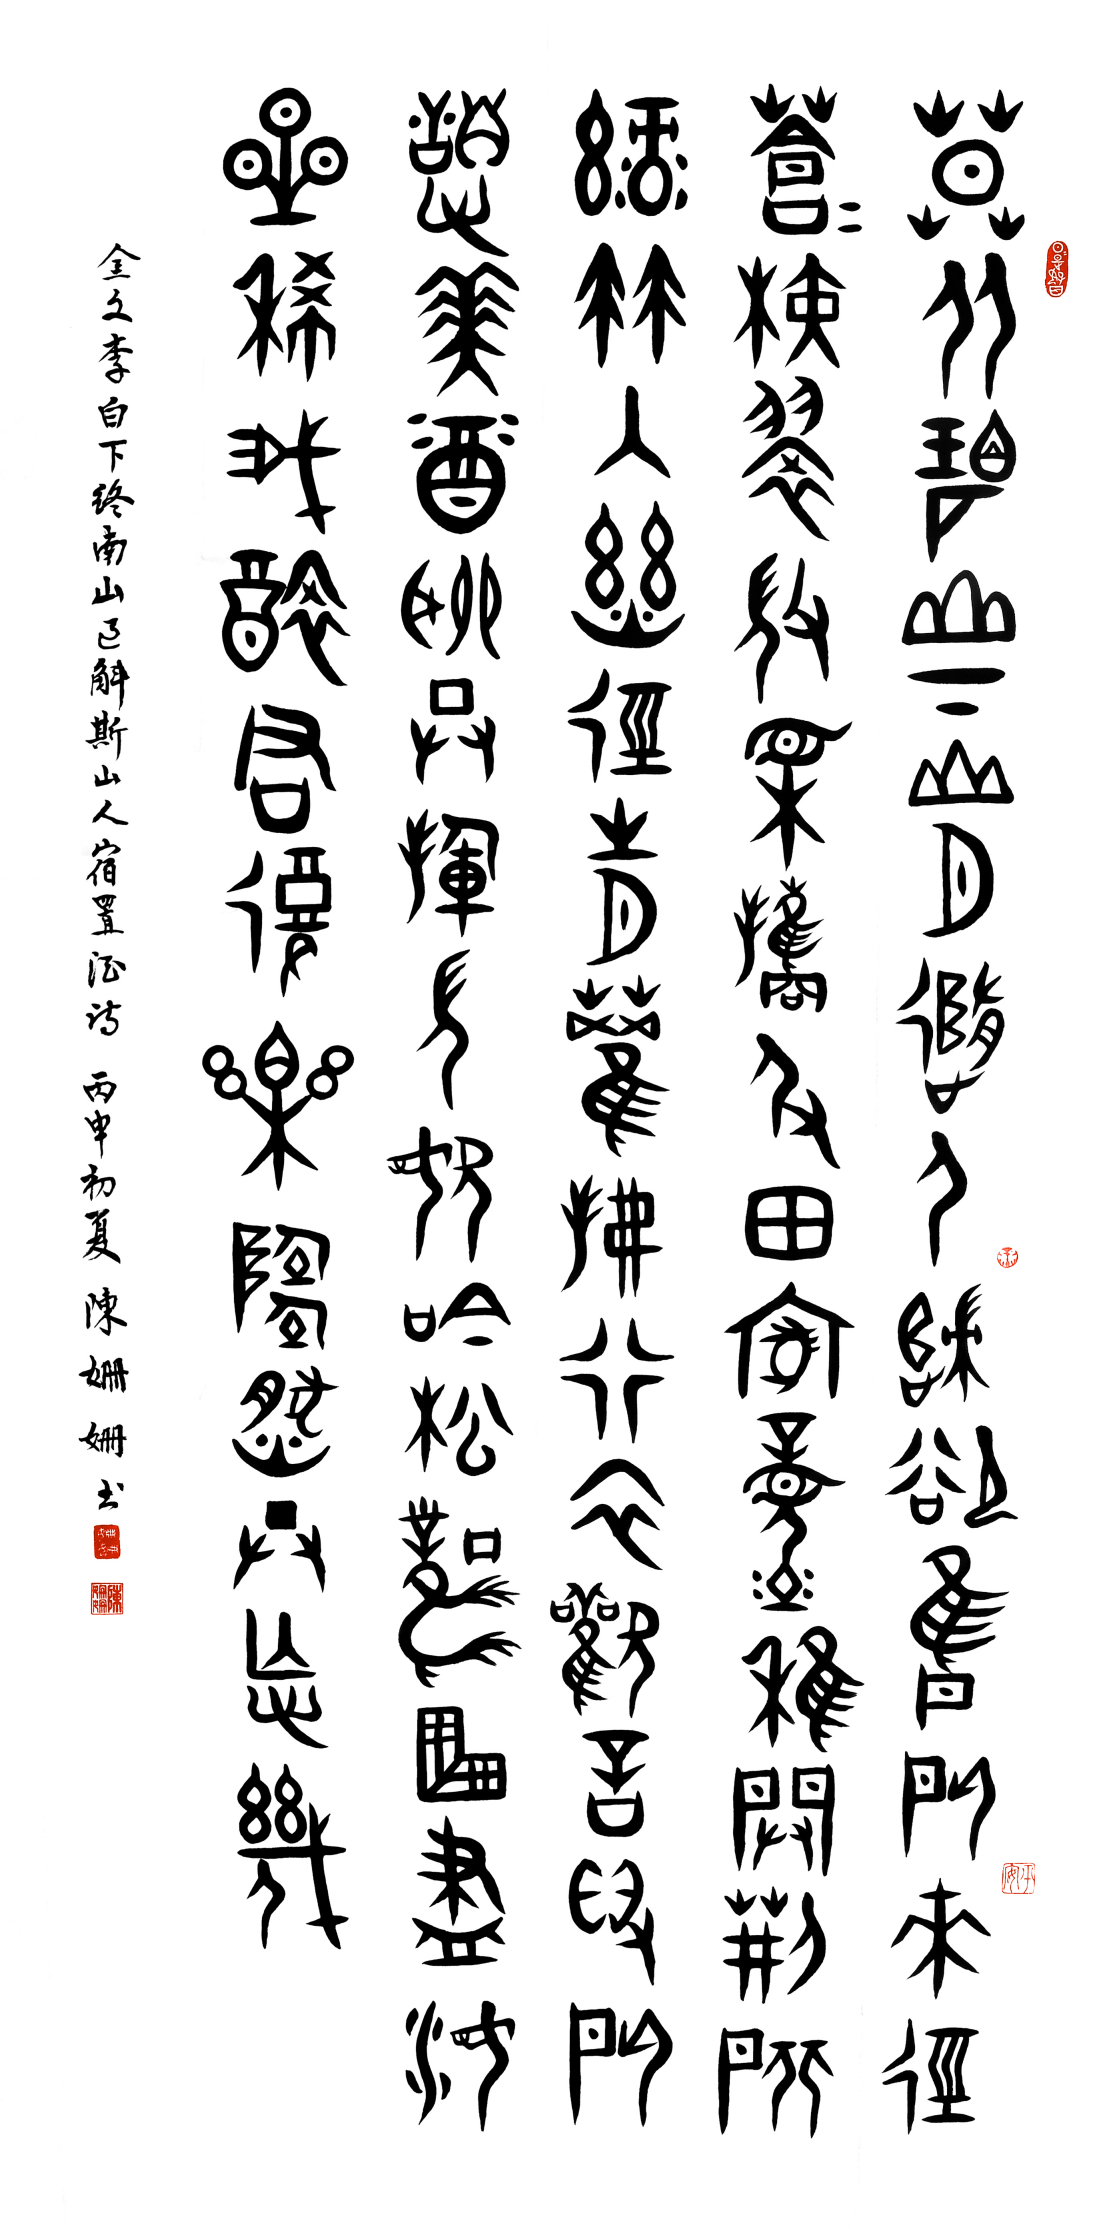 莫从碧山下山月隨人歸卻顧所來徑
蒼〻橫翠微相攜及田家童稚開荊扉
綠竹入幽徑青蘿拂行衣歡言得所
憩美酒聊共揮長歌吟松風曲盡河
星稀我醉君復樂陶然共忘幾
金文李白下终南山过斛斯山人宿置酒诗 丙申初夏 陳姍姍书